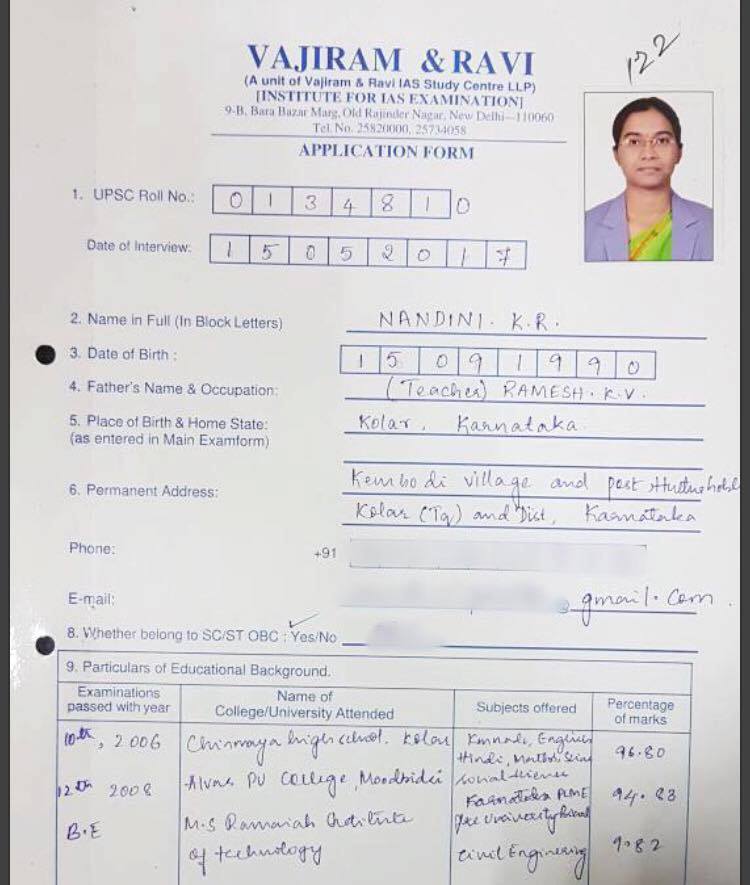 122
VAJIRAM & RAVI
(A unit of Vajiram & Ravi IAS Study Centre LLP)
[INSTITUTE FOR IAS EXAMINATION]
9-B, Bara Bazar Marg, Old Rajinder Nagar, New Delhi—110060
Tel. No. 25820000, 25734058
APPLICATION FORM
1. UPSC Roll No.: 0 1 3 4 8 1 0
Date of Interview: 1 5 0 5 2 0 1 7
2. Name in Full (In Block Letters) NANDINI. K.R.
3. Date of Birth : 1 5 0 9 1 9 9 0
4. Father's Name & Occupation: (Teacher) RAMESH. K.V.
5. Place of Birth & Home State: Kolar, Karnataka
(as entered in Main Examform)
Kembodi village and post
6. Permanent Address:
Kolar (Tq) and Dist, Karnataka
Phone: +91
E-mail: @gmail.com.
8. Whether belong to SC/ST OBC : Yes/No
9. Particulars of Educational Background.
Examinations passed with year
Name of College/University Attended
Subjects offered
Percentage of marks
10th, 2006 Chinmaya high school. Kolar
Hindi,
96.80
12th 2008 Alvas PU College, Moodbidri
94.83
B.E M.S Ramaiah
of technology
Civil Engineering
9.82